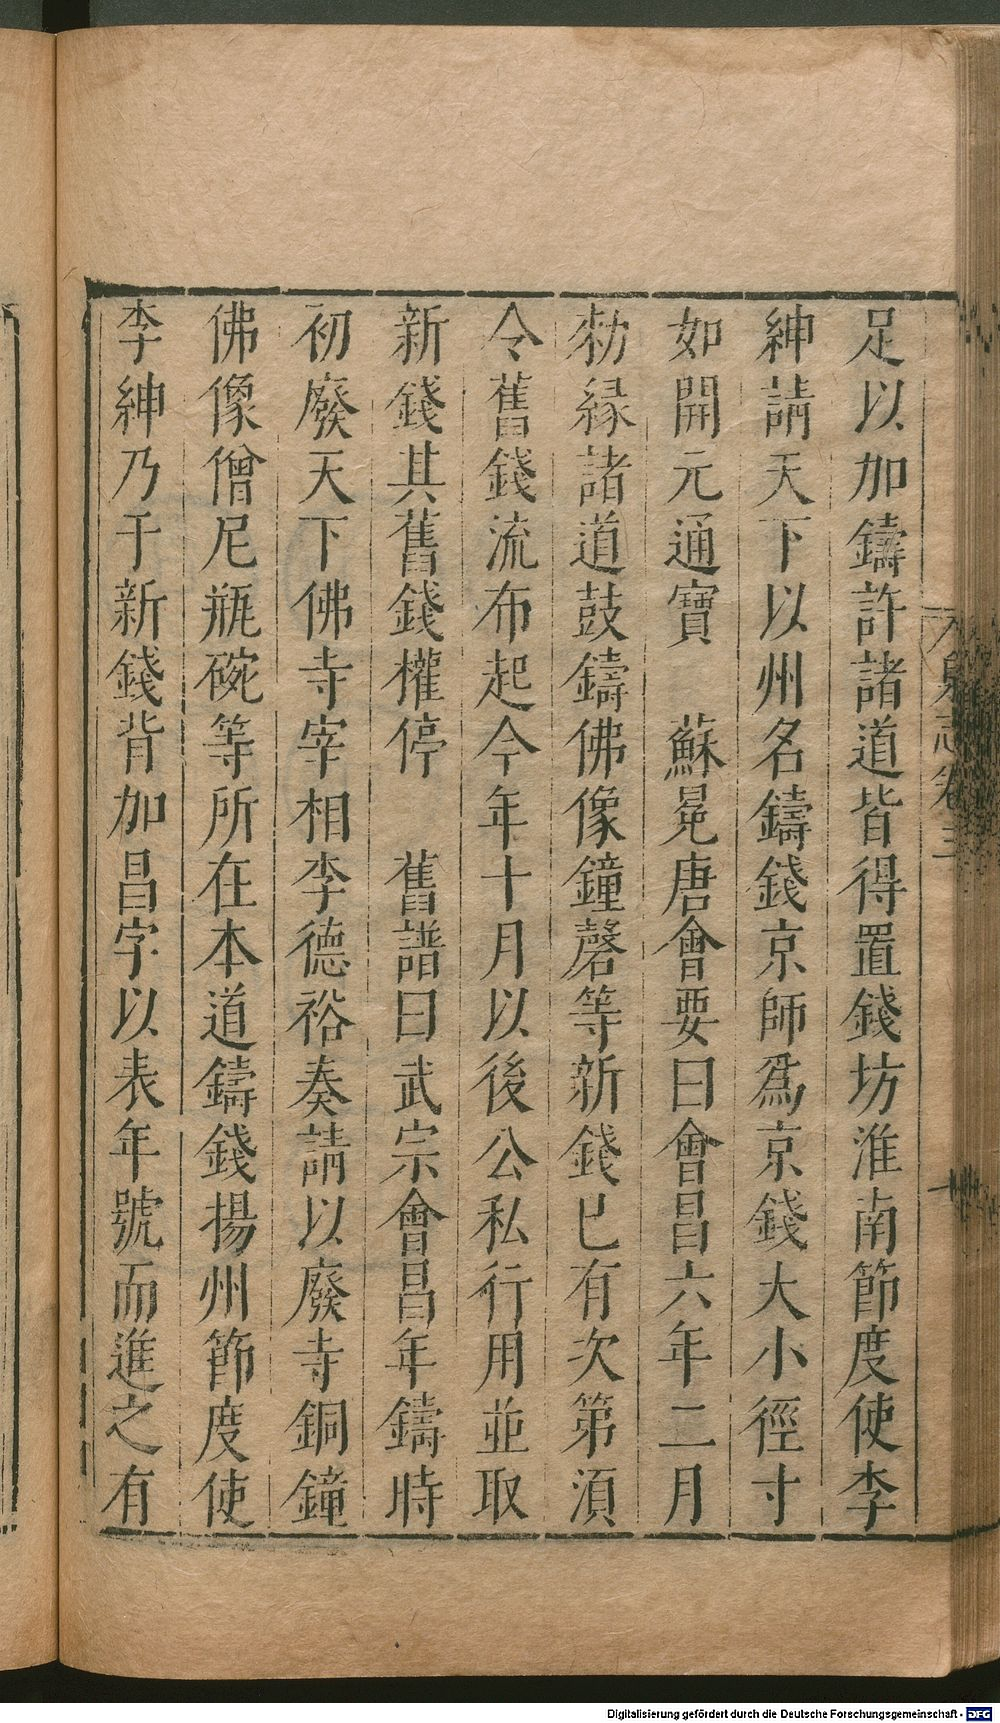 足以加鑄許諸道皆得置錢坊淮南節度使李
紳請天下以州名鑄錢京師爲京錢大小徑寸
如開元通寶　蘇冕唐會要曰會昌六年二月
勑緣諸道鼓鑄佛像鐘磬等新錢已有次第須
令舊錢流布起今年十月以後公私行用並取
新錢其舊錢權停　舊譜曰武宗會昌年鑄時
初廢天下佛寺宰相李德裕奏請以廢寺銅鐘
佛像僧尼瓶碗等所在本道鑄錢揚州節度使
李紳乃于新錢背加昌字以表年號而進之有
泉志卷三
Digitalisierung gefördert durch die Deutsche Forschungsgemeinschaft - DFG